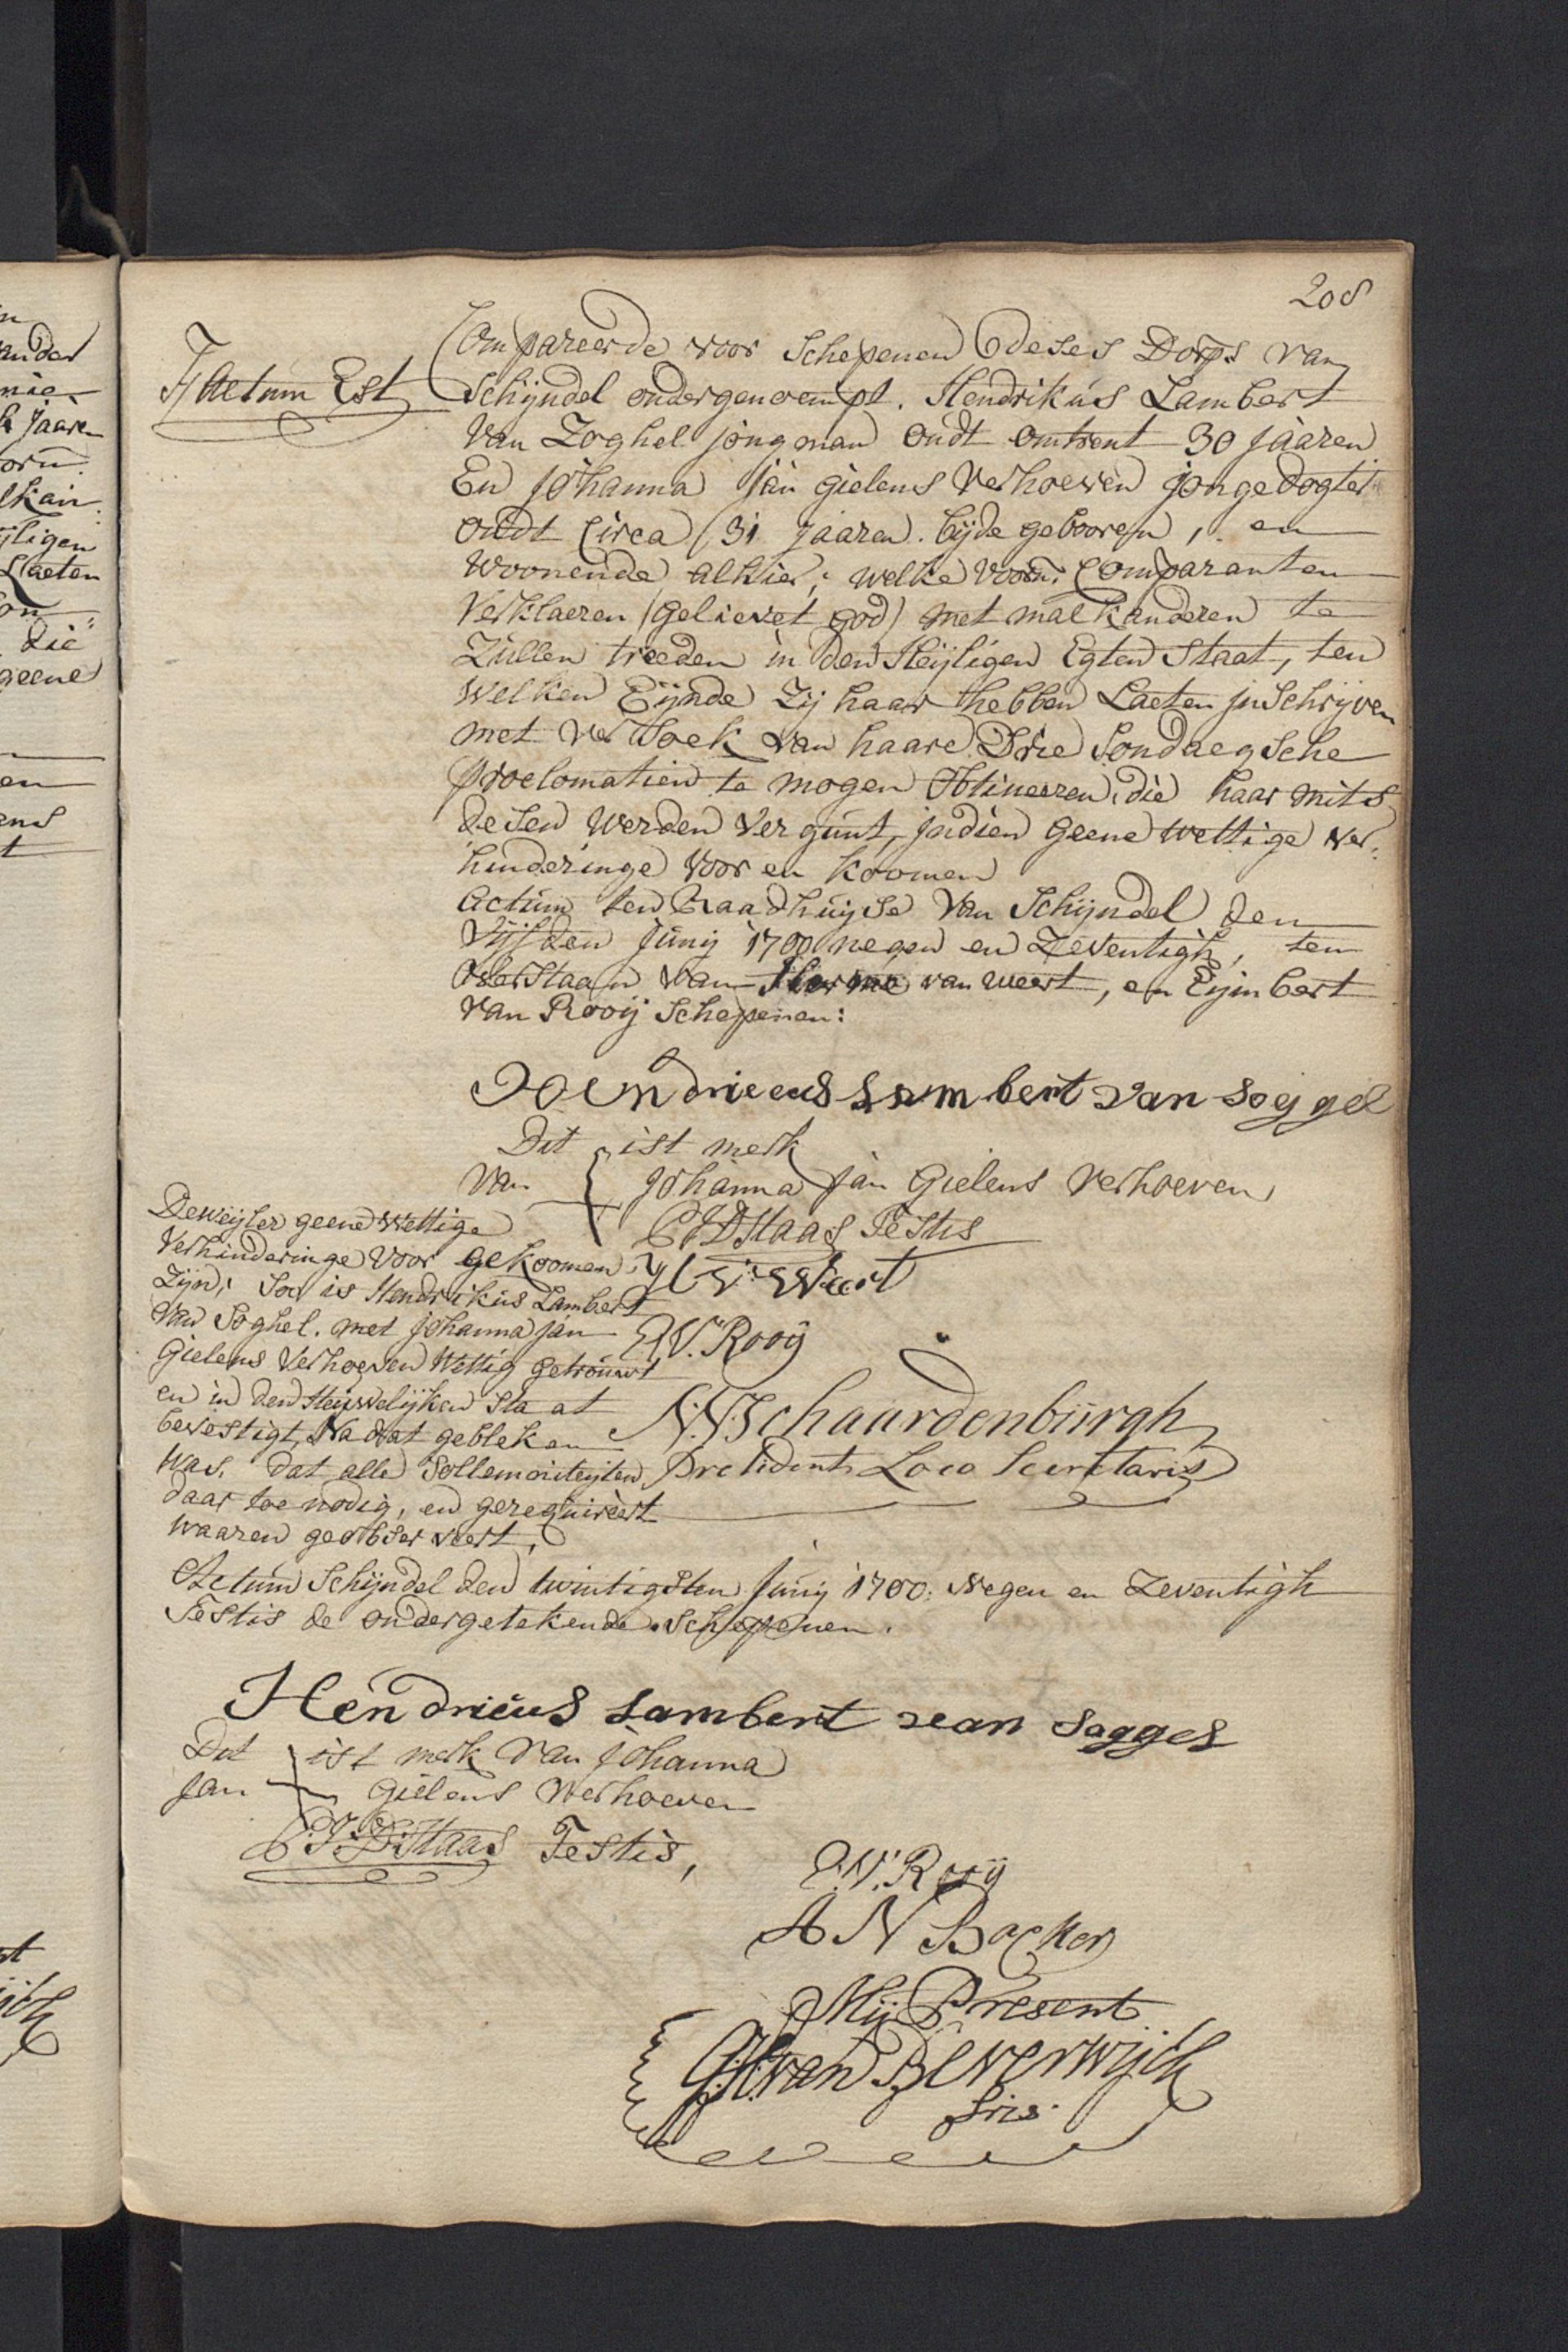 208
Factum Est
Compareerde voor Schepenen deses Dorps van
Schijndel ondergenoempt. Hendrikus Lambert
Van Zoghel jongman oudt omtrent 30 jaaren
En Johanna Jan Gielens Verhoeven jonge dogter
oudt Circa 31 jaaren. bijde gebooren, en
Woonende alhier; welke voorn: Comparanten
Verklaeren (gelievet god) met malkanderen te
Zullen treeden in den Heijligen Egten Staat, ten
Welken Eijnde Zij haar hebben Laeten jnschrijven
met Versoek van haare Drie Sondaegsche
proclomatien te mogen Obtineeren, die haar mits
desen werden Vergunt, jndien Geene wettige ver:
hinderinge Voor en koomen
Actum ten Raadhuijse Van Schijndel den
Vijfden Junij 1700 negen en Zeventigh, ten
Overstaan van van weert, en Eijmbert
van Rooij Schepenen:
Hendricus Lambert van soggel
Dit ist merk
van Johanna Jan Gielens Verhoeven
Staas Testis
V: Weert
E V. Rooij
N: Schaurdenburgh
President Loco Secretaris
Deweijler geene Wettige
Verhinderinge Voor gekoomen
Zijn; Soo is Hendrikus Lambert
Van Soghel. met Johanna Jan
Gielens Verhoeven Wettig getrouwt
en in den Heuwelijken Staat
bevestigt, Na dat gebleken
was, dat alle Sollemniteijten
daar toe nodig, en gerequireert
Waaren geobserveert,
Actum Schijndel den twintigsten Junij 1700: Negen en Zeventigh
Testis de ondergetekende Schepenen.
Hendricus Lambert van sogges
Dit ist merk van Johanna
Jan Gielens Verhoeven
Staas Testis,
E. V. Rooij
A N Backer
Mij Present
van Beverwijck
Sris.